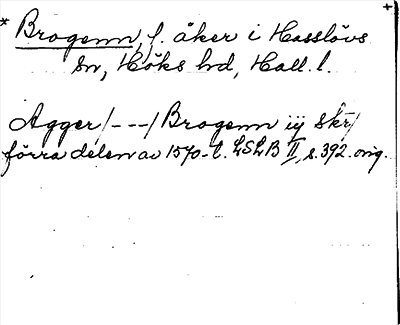 * Brogenn, f. åker i Hasslövs +
sn, Höks hd, Hall. l.
Agger /---/ Brogenn iÿ Skr/
förra delen av 1570-t. LSLB II, s. 392. orig.